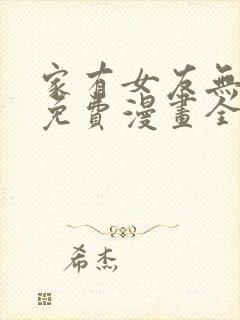 家有女友無
免費漫畫全
希杰